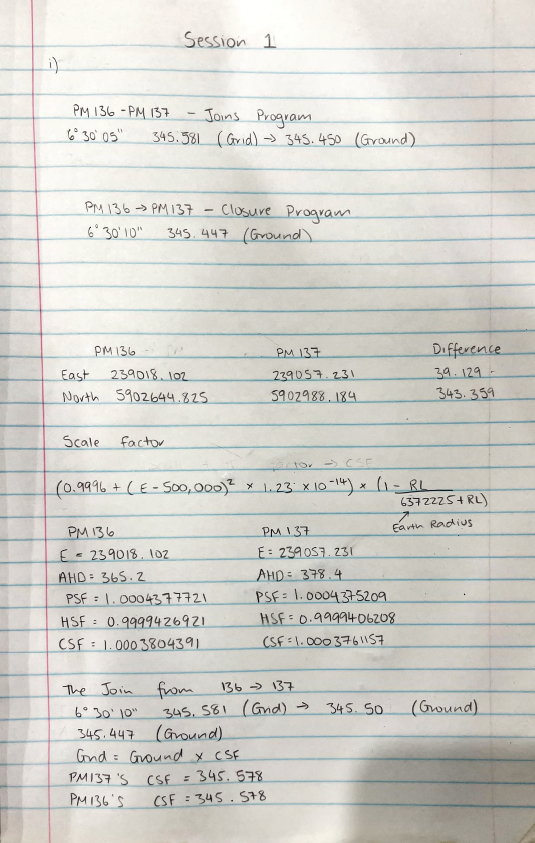 Session 1
i)
PM 136 - PM 137 - Joins Program
6° 30' 05" 345.581 (Grid) → 345.450 (Ground)
PM 136 → PM 137 - Closure Program
6° 30' 10" 345.447 (Ground)
PM 136 PM 137 Difference
East 239018.102 239057.231 39.129
North 5902644.825 5902988.184 343.359
Scale factor
→ CSF
(0.9996 + (E - 500,000)² × 1.23 × 10⁻¹⁴) × (1 - RL
6372225 + RL)
Earth Radius
PM 136 PM 137
E = 239018.102 E = 239057.231
AHD = 365.2 AHD = 378.4
PSF = 1.0004377721 PSF = 1.0004375209
HSF = 0.9999426921 HSF = 0.9999406208
CSF = 1.0003804391 CSF = 1.0003761157
The Join from 136 → 137
6° 30' 10" 345.581 (Grid) → 345.50 (Ground)
345.447 (Ground)
Grid = Ground × CSF
PM137'S CSF = 345.578
PM136'S CSF = 345.578